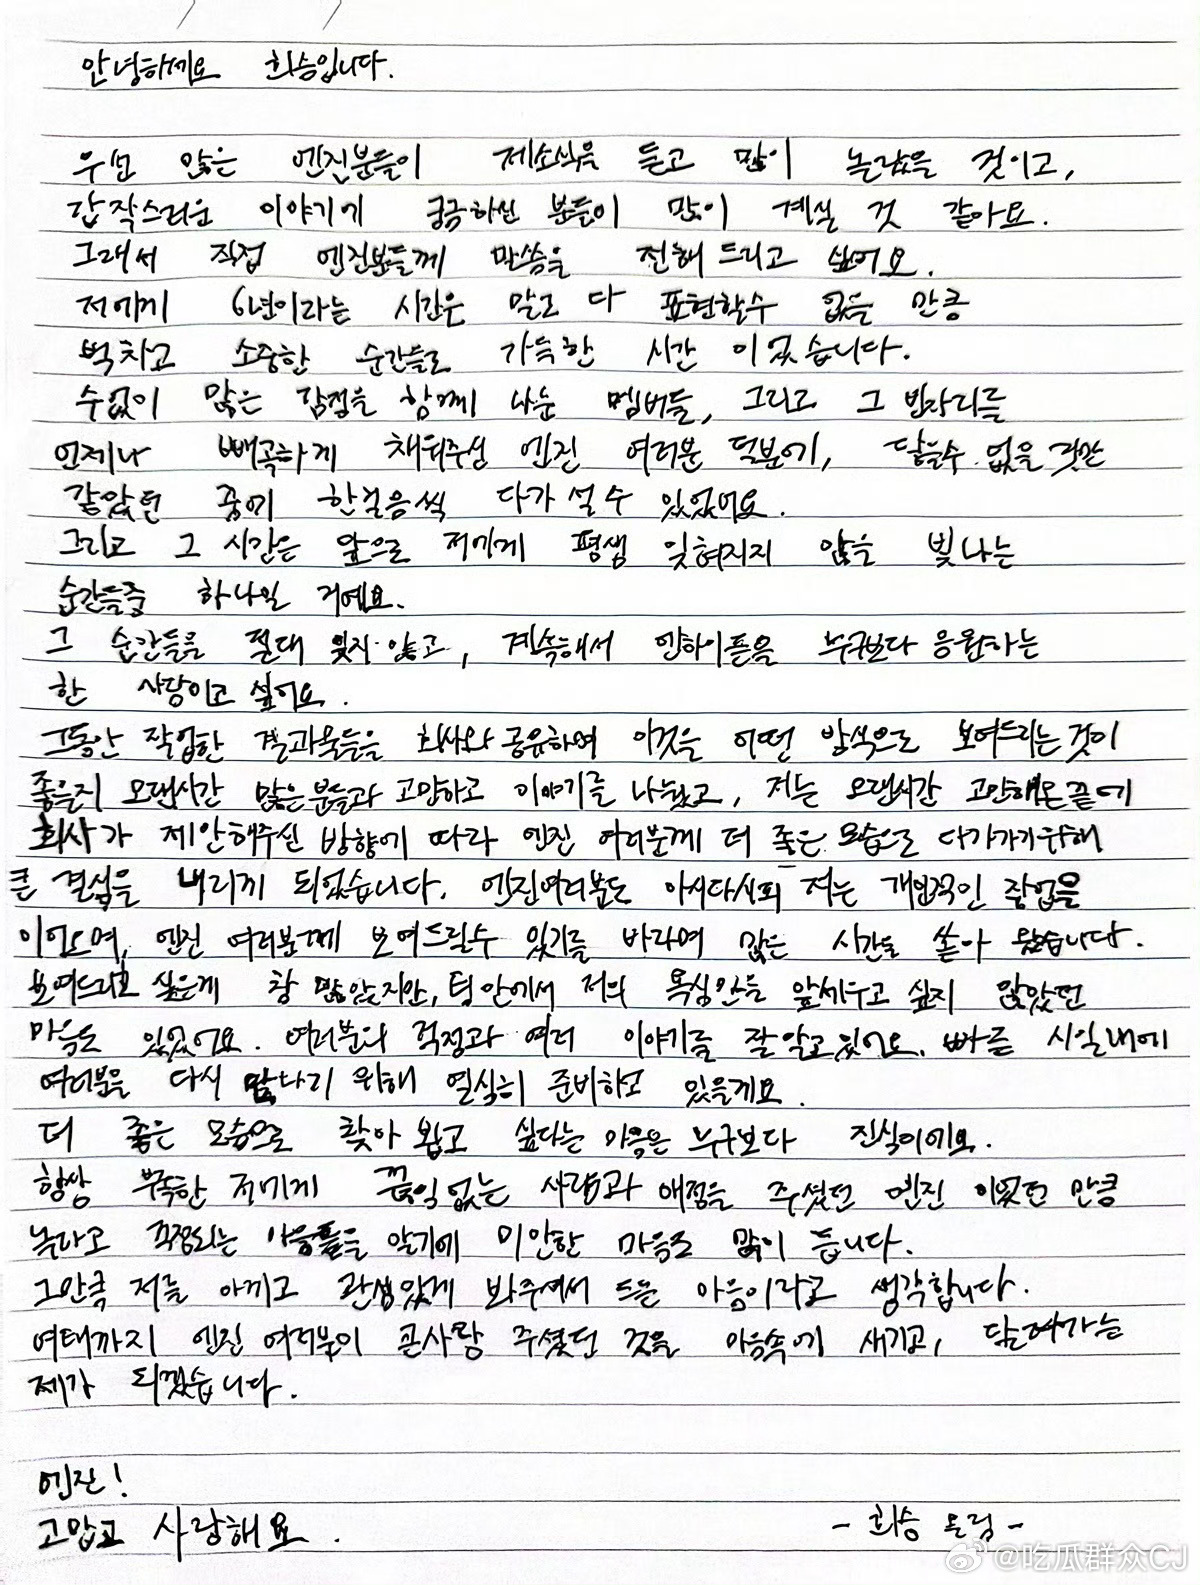 안녕하세요 희승입니다.
우선 많은 엔진분들이 제소식을 듣고 많이 놀랐을 것이고,
갑작스러운 이야기에 궁금하신 분들이 많이 계실 것 같아요.
그래서 직접 엔진분들께 말씀을 전해 드리고 싶어요.
저에게 6년이라는 시간은 말로 다 표현할수 없을 만큼
벅차고 소중한 순간들로 가득한 시간 이었습니다.
수없이 많은 감정을 함께 나눈 멤버들, 그리고 그 빈자리를
언제나 빼곡하게 채워주신 엔진 여러분 덕분에, 닿을수 없을 것만
같았던 꿈에 한걸음씩 다가설수 있었어요.
그리고 그 시간은 앞으로 저에게 평생 잊혀지지 않을 빛나는
순간들중 하나일 거예요.
그 순간들을 절대 잊지 않고, 계속해서 엔하이픈을 누구보다 응원하는
한 사람이고 싶어요.
그동안 작업한 결과물들을 회사와 공유하며 이것을 어떤 방식으로 보여드리는것이
좋을지 오랜시간 많은분들과 고민하고 이야기를 나눴고, 저는 오랜시간 고민해온끝에
회사가 제안해주신 방향에 따라 엔진 여러분께 더 좋은 모습으로 다가가기위해
큰 결심을 내리게 되었습니다. 엔진여러분도 아시다시피 저는 개인적인 작업을
이어오며, 엔진 여러분께 보여드릴수 있기를 바라며 많은 시간을 쏟아 왔습니다.
보여드리고 싶은게 참 많았지만, 팀 안에서 저의 욕심만을 앞세우고 싶지 않았던
마음도 있었어요. 여러분의 걱정과 여러 이야기를 잘 알고있어요. 빠른 시일내에
여러분을 다시 만나기 위해 열심히 준비하고 있을게요.
더 좋은 모습으로 찾아 뵙고 싶다는 마음은 누구보다 진심이에요.
항상 부족한 저에게 끊임없는 사랑과 애정을 주셨던 엔진 이었던 만큼
놀라고 걱정되는 마음들을 알기에 미안한 마음도 많이 듭니다.
그만큼 저를 아끼고 관심있게 봐주셔서 드는 마음이라고 생각합니다.
여태까지 엔진 여러분이 큰사랑 주셨던 것을 마음속에 새기고, 달려가는
제가 되겠습니다.
엔진!
고맙고 사랑해요.
- 희승 올림 -
@吃瓜群众CJ